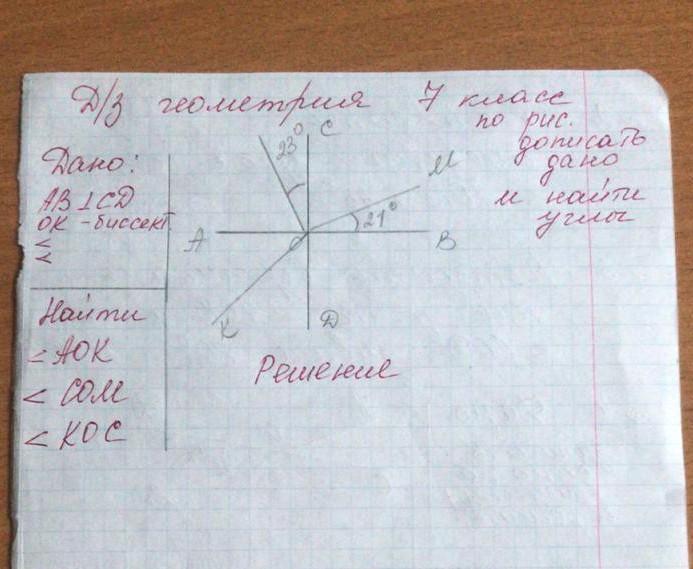 Д/з геометрия 7 класс
по рис.
дописать
дано
и найти
углы
Дано:
AB ⊥ CD
OK - биссект.
<
<
Найти
< AOK
< COM
< KOC
23°
C
M
21°
A
O
B
K
Д
Решение